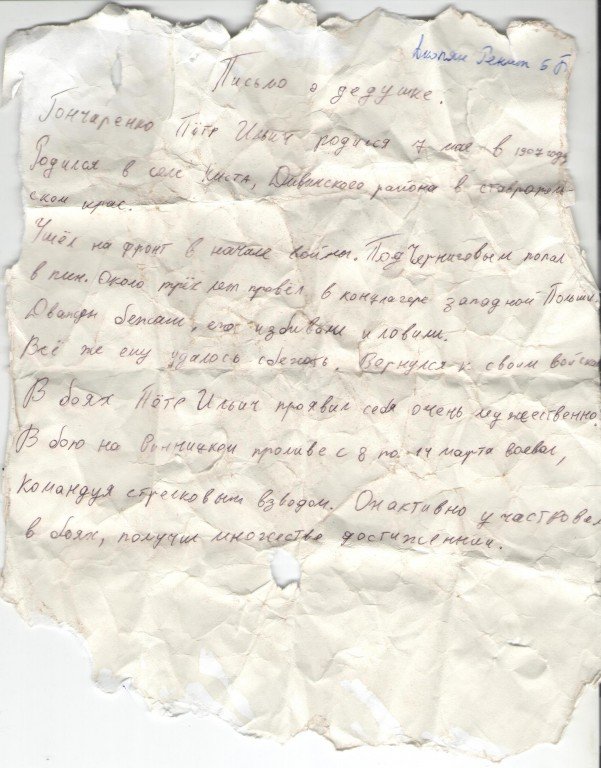 Акопян 5 Б
Письмо о дедушке.
Гончаренко Пётр Ильич родился 7 мая в 1907 году
Родился в селе Киста, Дивинского района в ставрополь-
ском крае.
Ушёл на фронт в начале войны. Под Черниговым попал
в плен. Около трёх лет провёл в концлагере западной Польши.
Дважды бежал, его избивали и ловили.
Всё же ему удалось сбежать. Вернулся к своим войскам
В боях Пётр Ильич проявил себя очень мужественно.
В бою на проливе с 8 по 14 марта воевал,
командуя стрелковым взводом. Он активно участвовал
в боях, получил множество достижений.